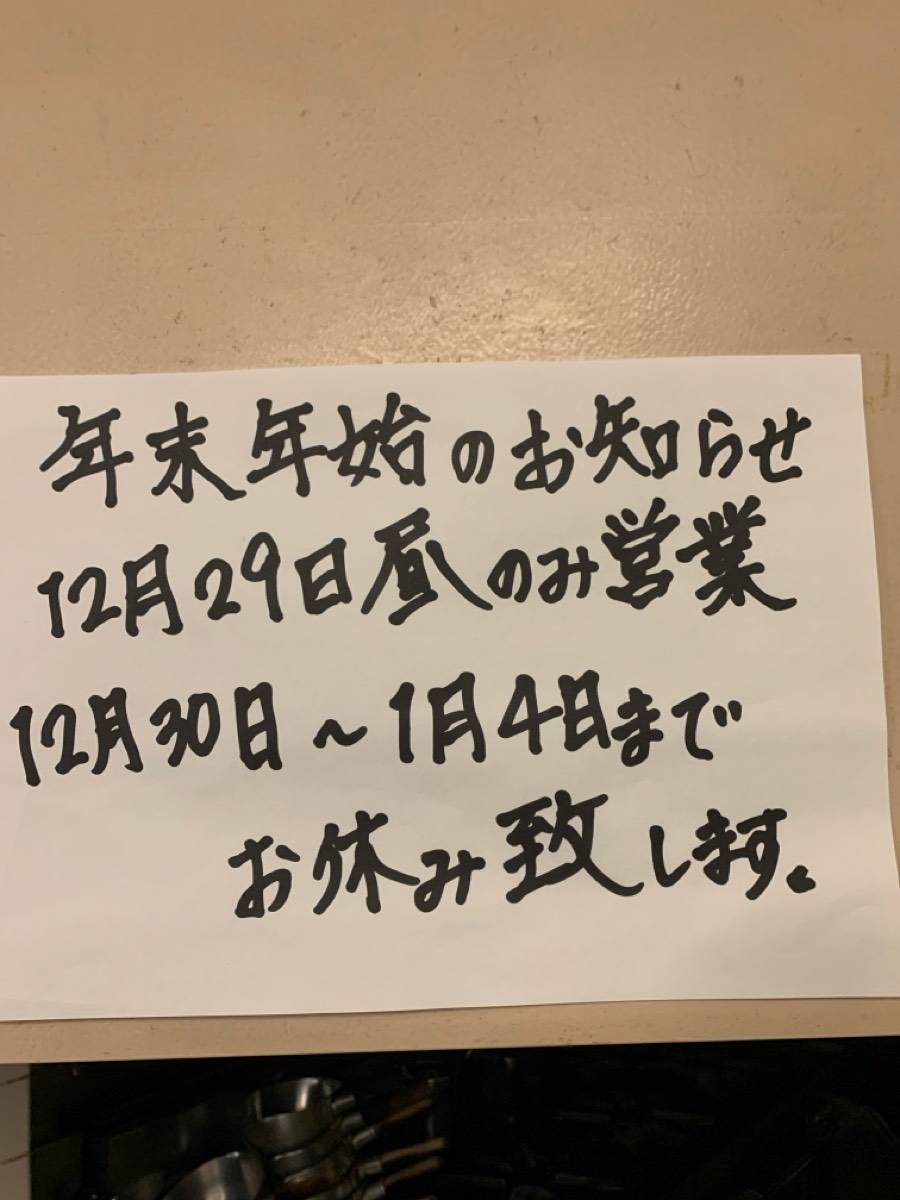 年末年始のお知らせ
12月29日昼のみ営業
12月30日~1月4日まで
お休み致します。